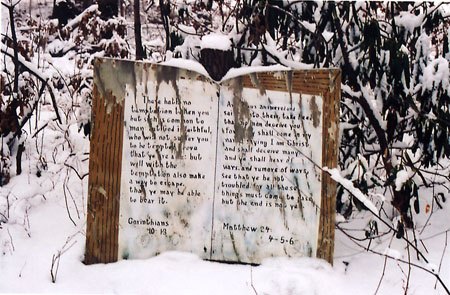 There hath no
temptation taken you
but such
common to
man
faithful,
who will not suffer you
to be tempted above
that ye are
but
will with the
temptation also make
a way to escape,
that ye may be able
to bear it.
Corinthians
10 13
answered and
said unto them, take heed
that no man deceive you
for many shall come in
my name saying I am Christ
shall deceive many
and ye shall hear of
wars, and rumors of wars,
see that ye be not
troubled for all these
things must come to pass,
but the end is not yet
Matthew 24
4-5-6